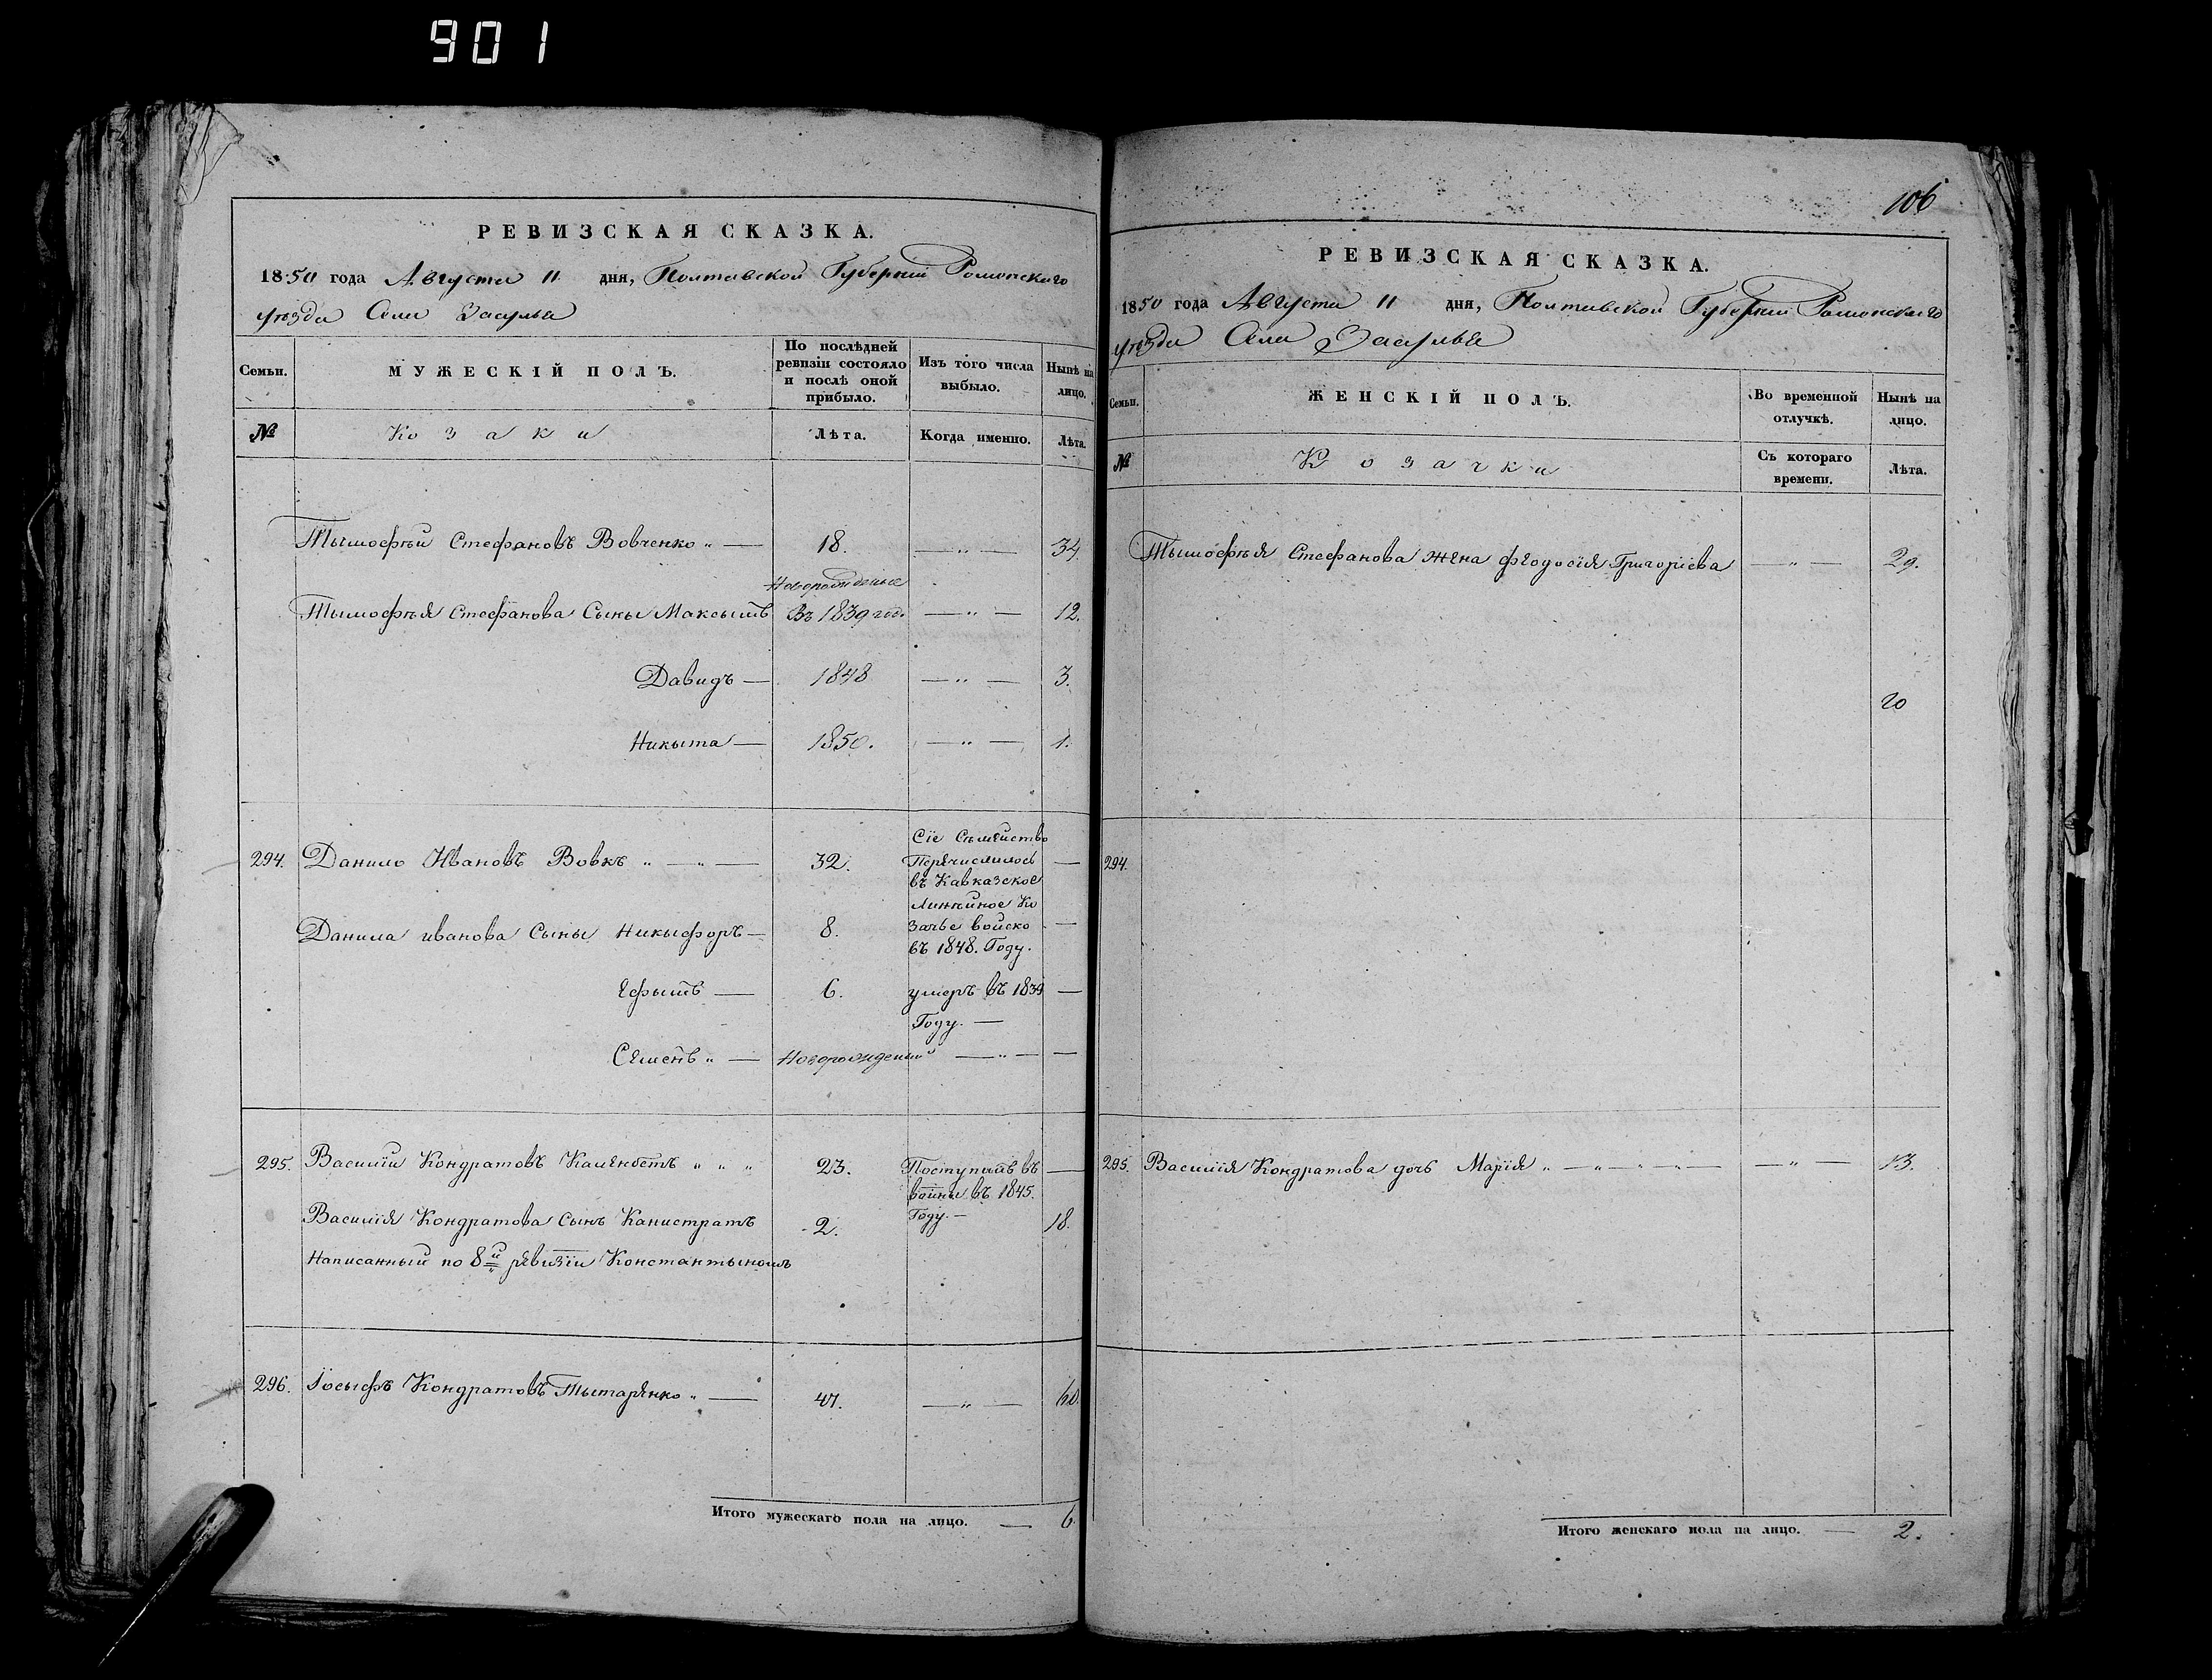 901
РЕВИЗСКАЯ СКАЗКА.
1850 года Августа 11 дня, Полтавской Губернии Роменского
уѣзда Села Засулья
Семьи.
МУЖЕСКІЙ ПОЛЪ.
По послѣдней
ревизіи состояло
и послѣ оной
прибыло.
Изъ того числа
выбыло.
Нынѣ на
лицо.
№
Козаки
Лѣта.
Когда именно.
Лѣта.
Тымофѣй Стефановъ Вовченко „ — 18. — „ — 34.
Новорожденные
Тымофѣя Стефанова Сыны Максымъ Въ 1839 год. — „ — 12.
Давидъ — 1848 — „ — 3.
Никыта — 1850. — „ — 1.
294. Данило Ивановъ Вовкъ „ — „ — 32. —
Сіе Сѣмейство
Перечислилось
въ Кавказское
Линѣйное Ко
зачье войско
въ 1848. Году.
Данила иванова Сыны Никыфоръ — 8. —
Ефымъ — 6. умеръ въ 1839 —
Году. —
Семенъ „ — Новорожденный — „ — —
295. Василій Кондратовъ „ „ „ 23. Поступилъ въ —
войны въ 1845.
Году. —
Василія Кондратова Сынъ Канистратъ 2. 18.
Написанный по 8й ревизіи Константыномъ
296. Іосыфъ Кондратовъ Тытаренко „ — 47. — „ — 60.
Итого мужескаго пола на лицо. — 6.
106
РЕВИЗСКАЯ СКАЗКА.
1850 года Августа 11 дня, Полтавской Губернии Роменского
уѣзда Села Засулья
Семьи.
ЖЕНСКІЙ ПОЛЪ.
Во временной
отлучкѣ.
Нынѣ на
лицо.
№
Козачки
Съ котораго
времени.
Лѣта.
Тымофѣя Стефанова жена Феодосія Григоріева — „ — 29.
20
294.
295. Василія Кондратова дочь Марія „ — „ — „ — „ — — „ — 13.
Итого женскаго пола на лицо. — 2.